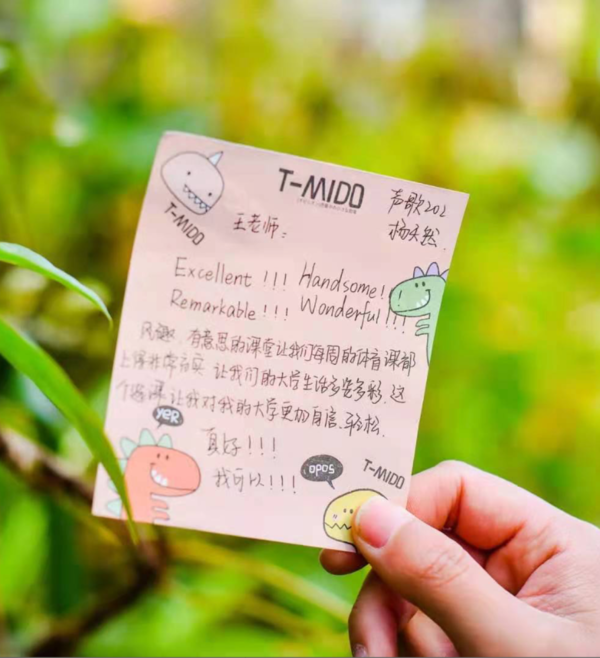 T-MIDO
T-MIDO
声歌202
杨天然
王老师：
Excellent !!! Handsome!
Remarkable !!! Wonderful !!!
风趣、有意思的课堂让我们每周的体育课都
上得非常充实 让我们的大学生活多姿多彩. 这
个课 让我对我的大学更加自信、轻松.
真好!!!
我可以!!!
YER
apos
T-MIDO